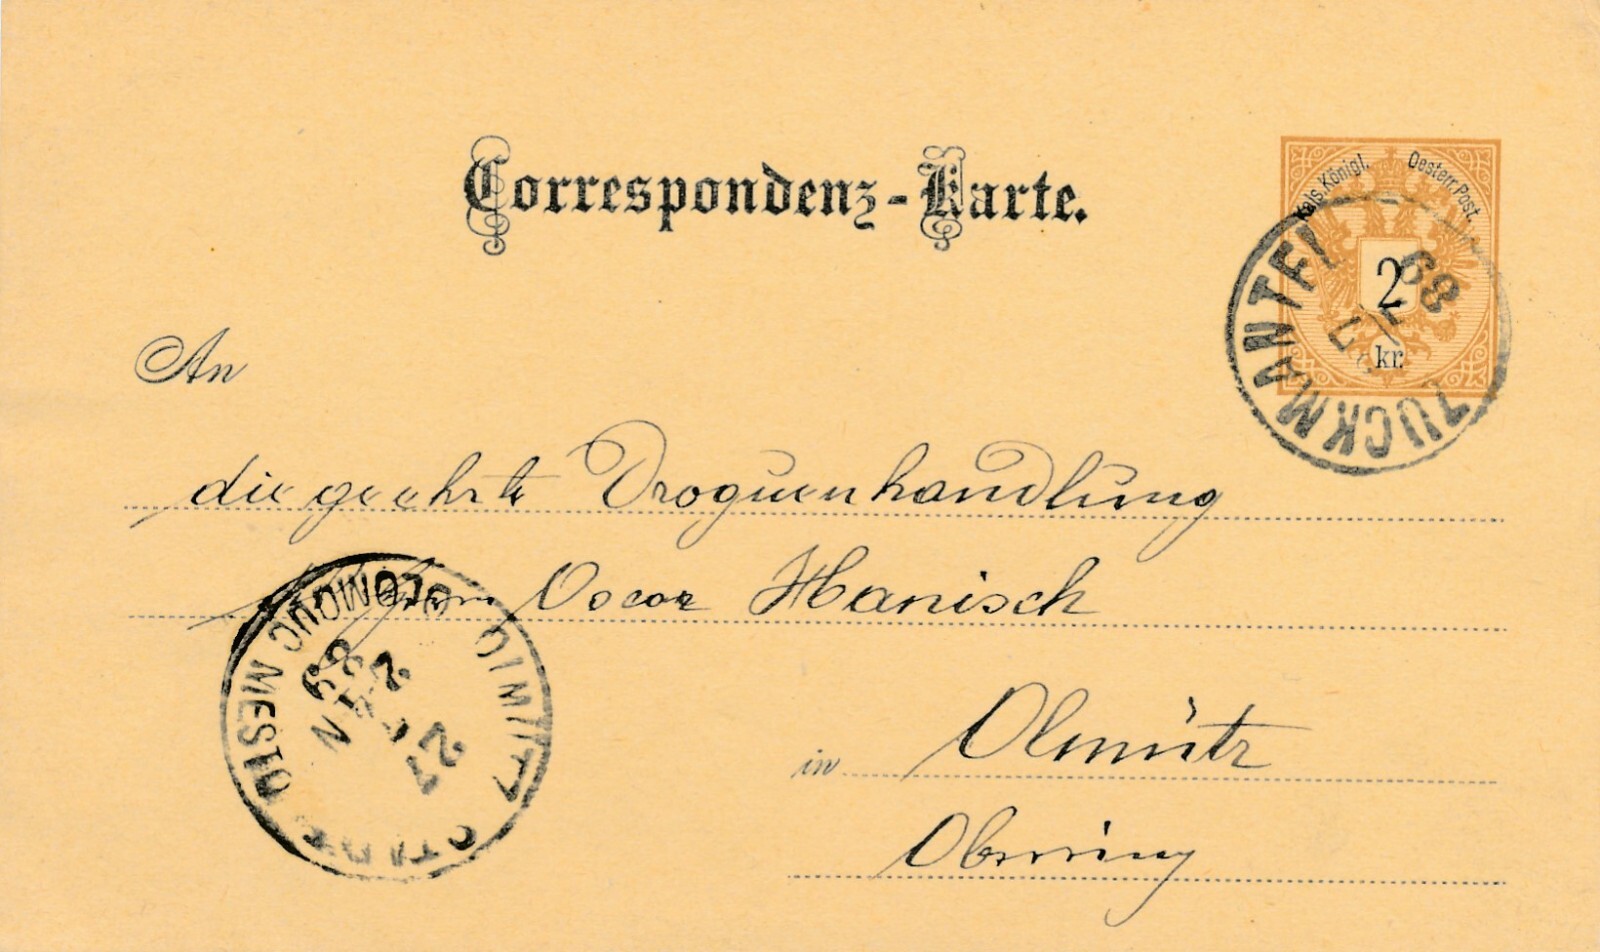 Correspondenz-Karte.
Kais. Königl. Oesterr. Post.
2
kr.
ZUCKMANTEL
89
An
die geehrte Droguenhandlung
Herrn Oscar Hanisch
OLMÜTZ STADT
OLOMOUC MESTO
27
89
in Olmütz
Oberring